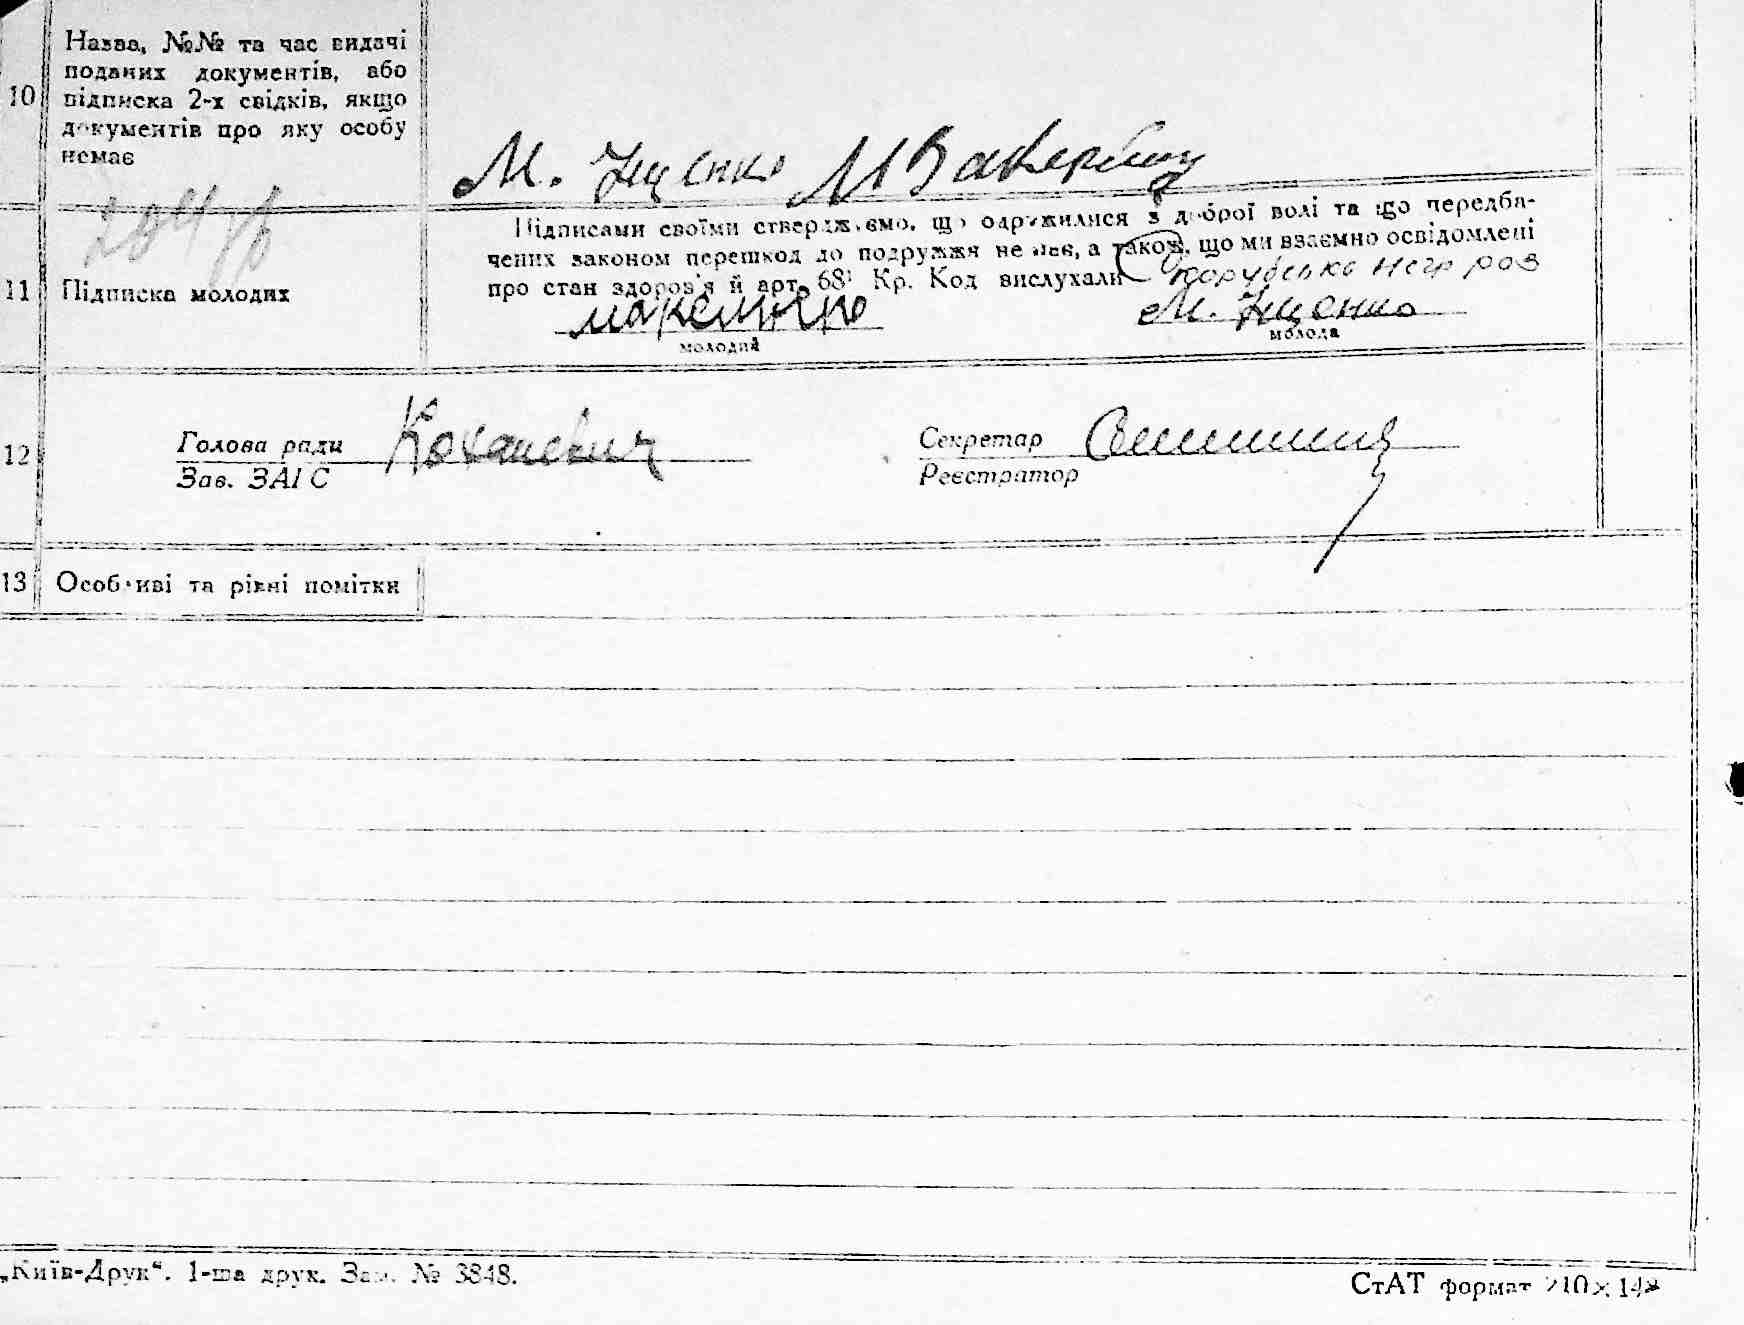 10 Назва, №№ та час видачі
поданих документів, або
підписка 2-х свідків, якщо
документів про яку особу
немає
М. Іщенко М
11 Підписка молодих
Підписами своїми стверджуємо, що одружилися з доброї волі та що передба-
чених законом перешкод до подружжя не має, а також, що ми взаємно освідомлені
про стан здоров'я й арт. 68¹ Кр. Код вислухали
молодий
М. Іщенко
молода
12 Голова ради Коханевич
Зав. ЗАГС
Секретар
Реєстратор
13 Особливі та різні помітки
„Київ-Друк“. 1-ша друк. Зам. № 3848.
СтАТ формат 210×148